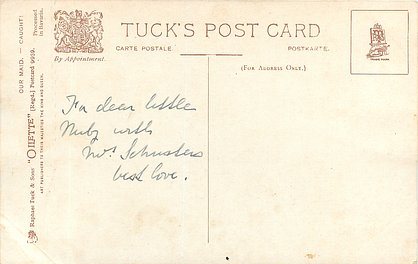 TUCK'S POST CARD
CARTE POSTALE.
POSTKARTE.
By Appointment.
(FOR ADDRESS ONLY.)
TRADE MARK
For dear little
with
Mrs Schusters
best love.
OUR MAID. — CAUGHT!
Processed in Bavaria.
Raphael Tuck & Sons' "OILETTE" [Regd.] Postcard 9919.
ART PUBLISHERS TO THEIR MAJESTIES THE KING AND QUEEN.